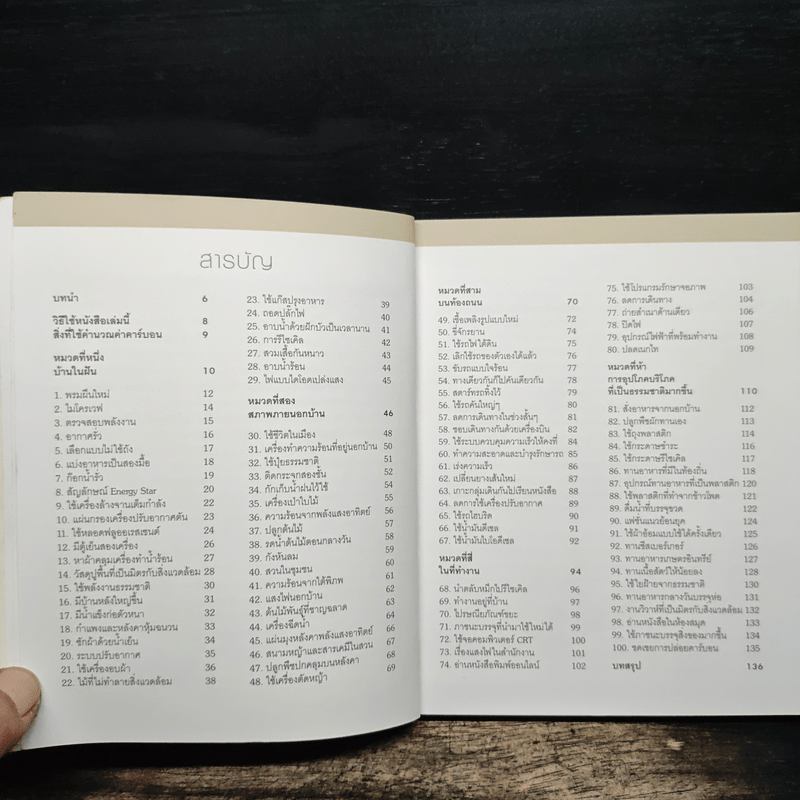 สารบัญ
บทนำ 6
วิธีใช้หนังสือเล่มนี้ 8
สิ่งที่ใช้คำนวณค่าคาร์บอน 9
หมวดที่หนึ่ง
บ้านในฝัน 10
1. พรมผืนใหม่ 12
2. ไมโครเวฟ 14
3. ตรวจสอบพลังงาน 15
4. อากาศรั่ว 16
5. เลือกแบบไม่ใช้ถัง 17
6. แบ่งอาหารเป็นสองมื้อ 18
7. ก๊อกน้ำรั่ว 19
8. สัญลักษณ์ Energy Star 20
9. ใช้เครื่องล้างจานเต็มกำลัง 22
10. แผ่นกรองเครื่องปรับอากาศตัน 23
11. ใช้หลอดฟลูออเรสเซนต์ 24
12. มีตู้เย็นสองเครื่อง 26
13. หาผ้าคลุมเครื่องทำน้ำร้อน 27
14. วัสดุปูพื้นที่เป็นมิตรกับสิ่งแวดล้อม 28
15. ใช้พลังงานธรรมชาติ 30
16. มีบ้านหลังใหญ่ขึ้น 31
17. มีน้ำแข็งก่อตัวหนา 32
18. กำแพงและหลังคาหุ้มฉนวน 33
19. ซักผ้าด้วยน้ำเย็น 34
20. ระบบปรับอากาศ 35
21. ใช้เครื่องอบผ้า 36
22. ไม้ที่ไม่ทำลายสิ่งแวดล้อม 38
23. ใช้แก๊สปรุงอาหาร 39
24. ถอดปลั๊กไฟ 40
25. อาบน้ำด้วยฝักบัวเป็นเวลานาน 41
26. การรีไซเคิล 42
27. สวมเสื้อกันหนาว 43
28. อาบน้ำร้อน 44
29. ไฟแบบไดโอดเปล่งแสง 45
หมวดที่สอง
สภาพภายนอกบ้าน 46
30. ใช้ชีวิตในเมือง 48
31. เครื่องทำความร้อนที่อยู่นอกบ้าน 50
32. ใช้ปุ๋ยธรรมชาติ 51
33. ติดกระจกสองชั้น 52
34. กักเก็บน้ำฝนไว้ใช้ 54
35. เครื่องเป่าใบไม้ 55
36. ความร้อนจากพลังแสงอาทิตย์ 56
37. ปลูกต้นไม้ 57
38. รดน้ำต้นไม้ตอนกลางวัน 58
39. กังหันลม 59
40. สวนในชุมชน 60
41. ความร้อนจากใต้พิภพ 61
42. แสงไฟนอกบ้าน 62
43. ต้นไม้พันธุ์ที่ชาญฉลาด 63
44. เครื่องฉีดน้ำ 64
45. แผ่นมุงหลังคาพลังแสงอาทิตย์ 66
46. สนามหญ้าและสารเคมีในสวน 67
47. ปลูกพืชปกคลุมบนหลังคา 68
48. ใช้เครื่องตัดหญ้า 69
หมวดที่สาม
บนท้องถนน 70
49. เชื้อเพลิงรูปแบบใหม่ 72
50. ขี่จักรยาน 74
51. ใช้รถไฟใต้ดิน 75
52. เลิกใช้รถของตัวเองได้แล้ว 76
53. ขับรถแบบใจร้อน 77
54. ทางเดียวกันก็ไปคันเดียวกัน 78
55. สตาร์ทรถทิ้งไว้ 79
56. ใช้รถคันใหญ่ๆ 80
57. ลดการเดินทางในช่วงสั้นๆ 81
58. ชอบเดินทางกันด้วยเครื่องบิน 82
59. ใช้ระบบควบคุมความเร็วให้คงที่ 84
60. ทำความสะอาดและบำรุงรักษารถ 85
61. เร่งความเร็ว 86
62. เปลี่ยนยางเส้นใหม่ 87
63. เกาะกลุ่มเดินกันไปเรียนหนังสือ 88
64. ลดการใช้เครื่องปรับอากาศ 89
65. ใช้รถไฮบริด 90
66. ใช้น้ำมันดีเซล 91
67. ใช้น้ำมันไบโอดีเซล 92
หมวดที่สี่
ในที่ทำงาน 94
68. นำตลับหมึกไปรีไซเคิล 96
69. ทำงานอยู่ที่บ้าน 97
70. ไปรษณีย์ภัณฑ์ขยะ 98
71. ภาชนะบรรจุที่นำมาใช้ใหม่ได้ 99
72. ใช้จอคอมพิวเตอร์ CRT 100
73. เรื่องแสงไฟในสำนักงาน 101
74. อ่านหนังสือพิมพ์ออนไลน์ 102
75. ใช้โปรแกรมรักษาจอภาพ 103
76. ลดการเดินทาง 104
77. ถ่ายสำเนาด้านเดียว 106
78. ปิดไฟ 107
79. อุปกรณ์ไฟฟ้าที่พร้อมทำงาน 108
80. ปลดเนกไท 109
หมวดที่ห้า
การอุปโภคบริโภค
ที่เป็นธรรมชาติมากขึ้น 110
81. สั่งอาหารจากนอกบ้าน 112
82. ปลูกพืชผักทานเอง 114
83. ใช้ถุงพลาสติก 115
84. ใช้กระดาษชำระ 116
85. ใช้กระดาษรีไซเคิล 117
86. ทานอาหารที่มีในท้องถิ่น 118
87. อุปกรณ์ทานอาหารที่เป็นพลาสติก 120
88. ใช้พลาสติกที่ทำจากข้าวโพด 121
89. ดื่มน้ำที่บรรจุขวด 122
90. แฟชั่นแนวย้อนยุค 124
91. ใช้ผ้าอ้อมแบบใช้ได้ครั้งเดียว 125
92. ทานชีสเบอร์เกอร์ 126
93. ทานอาหารเกษตรอินทรีย์ 127
94. ทานเนื้อสัตว์ให้น้อยลง 128
95. ใช้ใยฝ้ายจากธรรมชาติ 130
96. ทานอาหารกลางวันบรรจุห่อ 131
97. งานวิวาห์ที่เป็นมิตรกับสิ่งแวดล้อม 132
98. อ่านหนังสือในห้องสมุด 133
99. ใช้ภาชนะบรรจุสิ่งของมากขึ้น 134
100. ชดเชยการปล่อยคาร์บอน 135
บทสรุป 136